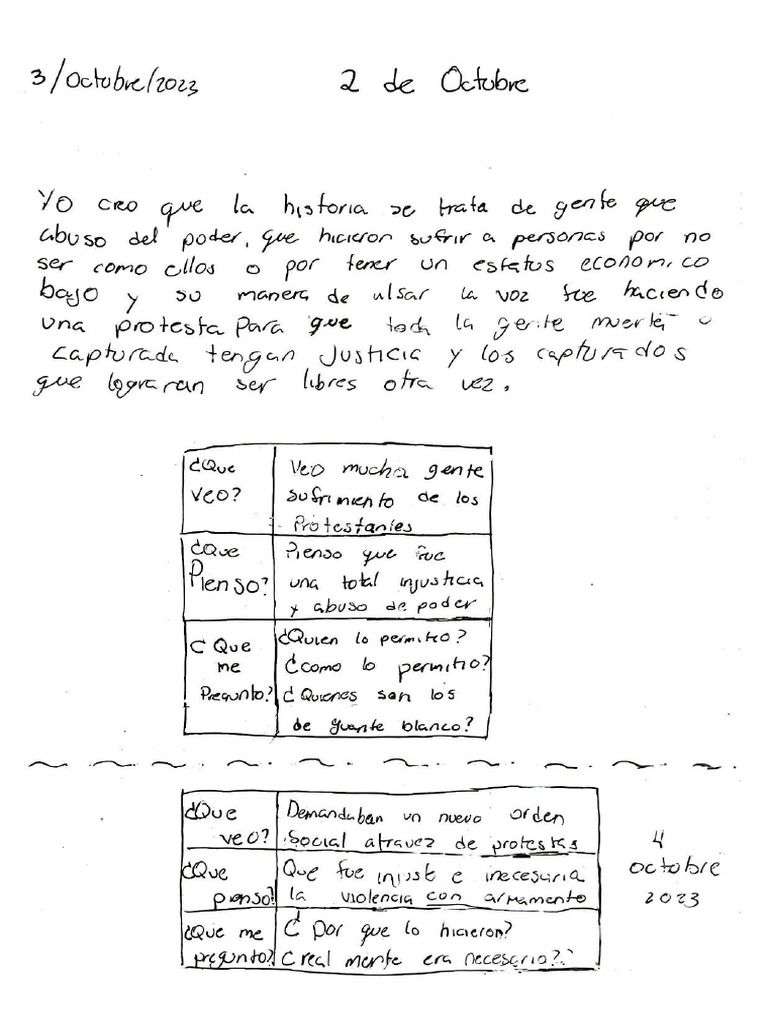 3/octubre/2023 2 de Octubre
Yo creo que la historia se trata de gente que
abuso del poder, que hicieron sufrir a personas por no
ser como ellos o por tener un estatus economico
bajo y su manera de ulsar la voz fue haciendo
una protesta para que toda la gente muerta o
capturada tengan Justicia y los capturados
que lograran ser libres otra vez.
¿Que Veo mucha gente
veo? sufrimiento de los
Protestantes
¿Que Pienso que fue
Pienso? una total injusticia
y abuso de poder
¿Que ¿Quien lo permitio?
me ¿como lo permitio?
Pregunto? ¿Quienes son los
de guante blanco?
¿Que Demandaban un nuevo orden
veo? Social atravez de protestas
4
octubre
2023
¿Que Que fue injust e inecesaria
pienso? la violencia con armamento
¿Que me ¿Por que lo hicieron?
pregunto? ¿real mente era necesario?